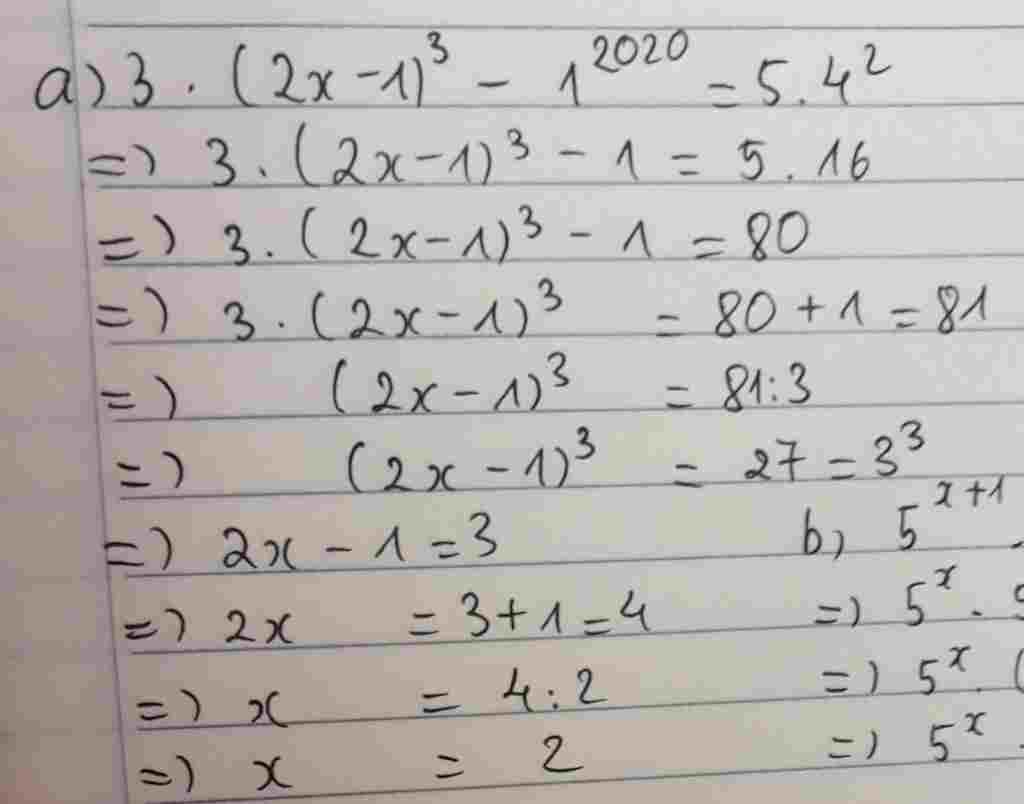 a) 3 . (2x - 1)³ - 1²⁰²⁰ = 5.4²
=) 3 . (2x - 1)³ - 1 = 5 . 16
=) 3 . (2x - 1)³ - 1 = 80
=) 3 . (2x - 1)³ = 80 + 1 = 81
=) (2x - 1)³ = 81:3
=) (2x - 1)³ = 27 = 3³
=) 2x - 1 = 3
=) 2x = 3 + 1 = 4
=) x = 4 : 2
=) x = 2
b) 5ˣ⁺¹
=) 5ˣ . 5
=) 5ˣ . (
=) 5ˣ .